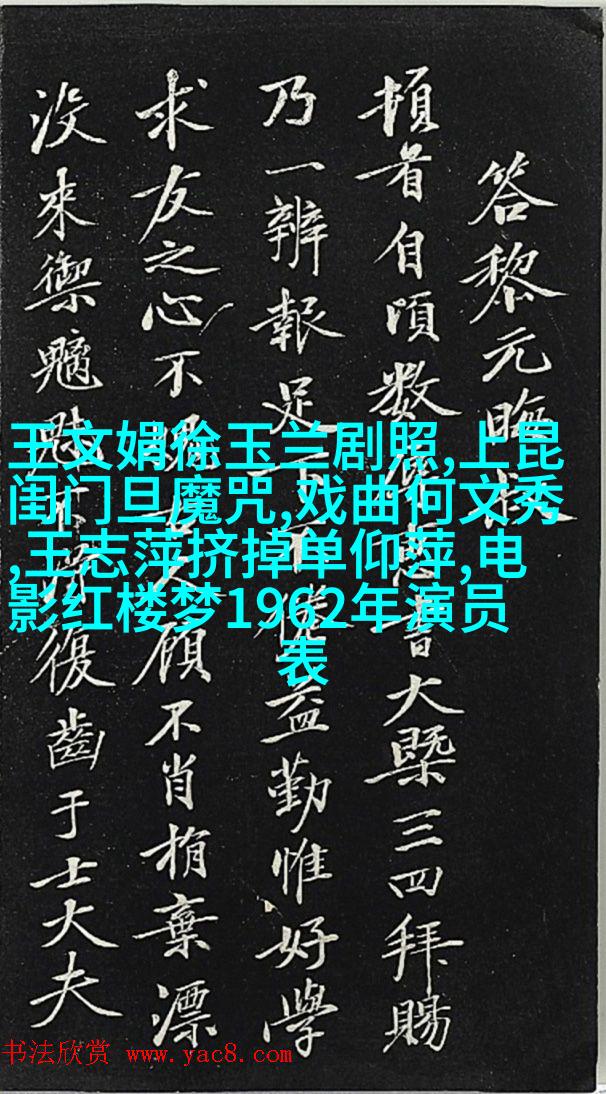 答黎元晦
頓首自頃数
書大槩三四拜賜
乃一辨報足下
益勤惟好學
求友之心不
顧不肖捐棄漂
没來禦魑魅
復齒于士大夫
王文娟徐玉兰剧照,上昆
闺门旦魔咒,戏曲何文秀
,王志萍挤掉单仰萍,电
影红楼梦1962年演员
表
书法欣赏 www.yac8.com